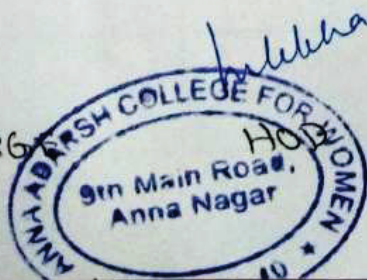 ANNA ADARSH COLLEGE FOR WOMEN
HOD
9th Main Road,
Anna Nagar